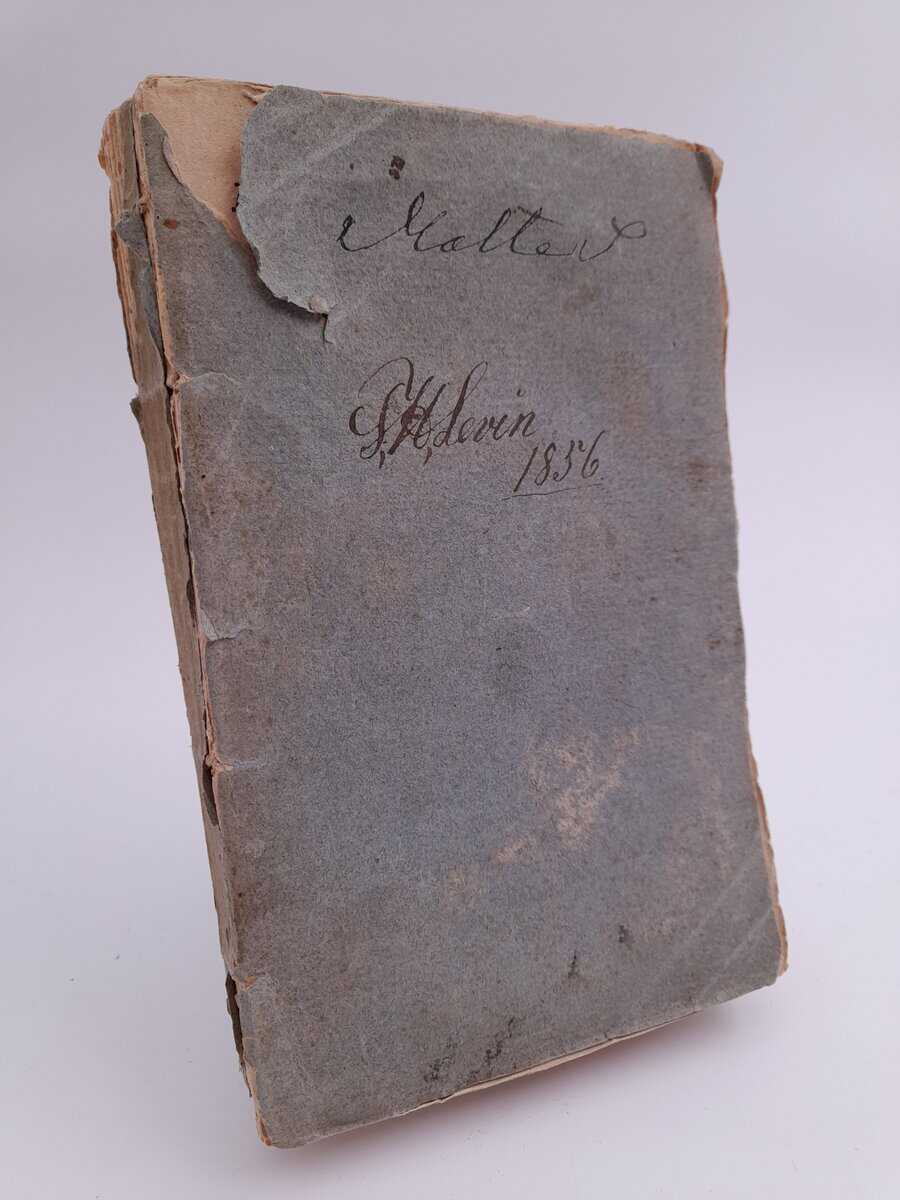 Malte S
S, H, Levin
1856